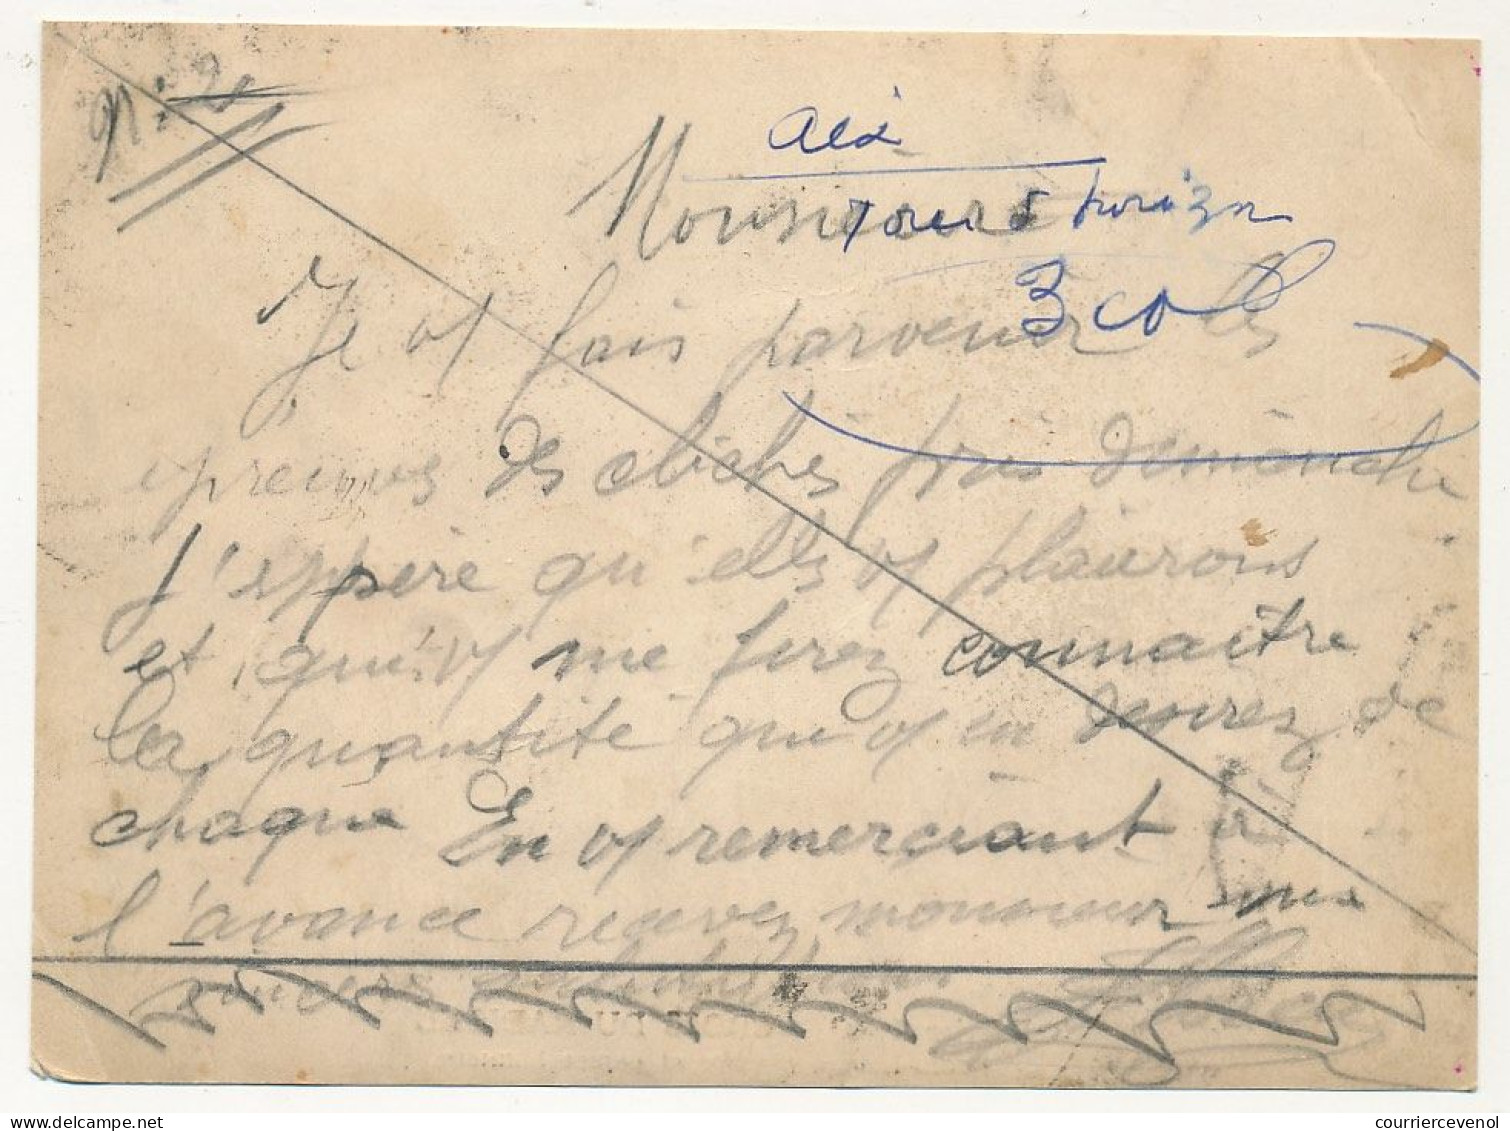 Aix
tour d'horizon
3 col
Monsieur
Je vs fais parvenir les
épreuves des clichés pris demanche
j'esppère qu'elles vs plairons
et qu'vs me ferez connaitre
les quantité que vs en desirez de
chaque En vs remerciant à
l'avance recevez monsieur mes
sincères salutations
courriercevenol